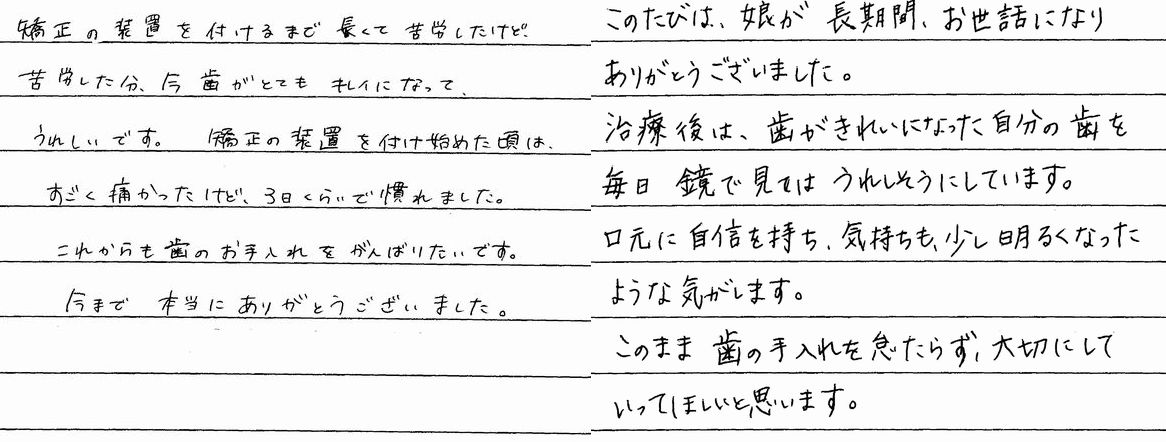 矯正の装置を付けるまで長くて苦労したけど、
苦労した分、今歯がとてもキレイになって、
うれしいです。 矯正の装置を付け始めた頃は、
すごく痛かったけど、3日くらいで慣れました。
これからも歯のお手入れをがんばりたいです。
今まで 本当にありがとうございました。
このたびは、娘が長期間、お世話になり
ありがとうございました。
治療後は、歯がきれいになった自分の歯を
毎日 鏡で見てはうれしそうにしています。
口元に自信を持ち、気持ちも、少し明るくなった
ような気がします。
このまま歯の手入れを怠たらず、大切にして
いってほしいと思います。